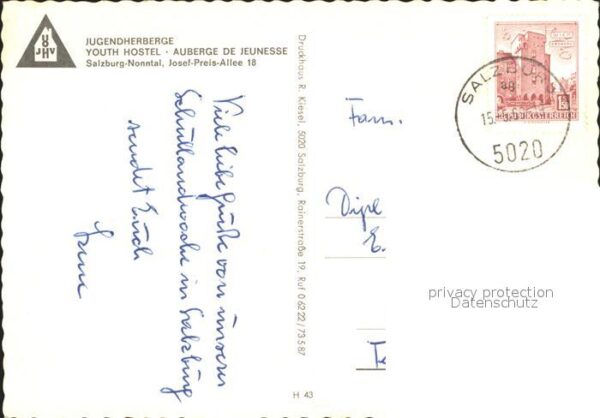 ÖJHV
JUGENDHERBERGE
YOUTH HOSTEL · AUBERGE DE JEUNESSE
Salzburg-Nonntal, Josef-Preis-Allee 18
Viele liebe Grüße von unserer
Schullandwoche in Salzburg
sendet Euch
Druckhaus R. Kiesel, 5020 Salzburg, Rainerstraße 19, Ruf 0 62 22 / 73 5 87
H 43
SALZBURG
5020
REPUBLIK ÖSTERREICH
Fam.
Dipl
E.
privacy protection
Datenschutz